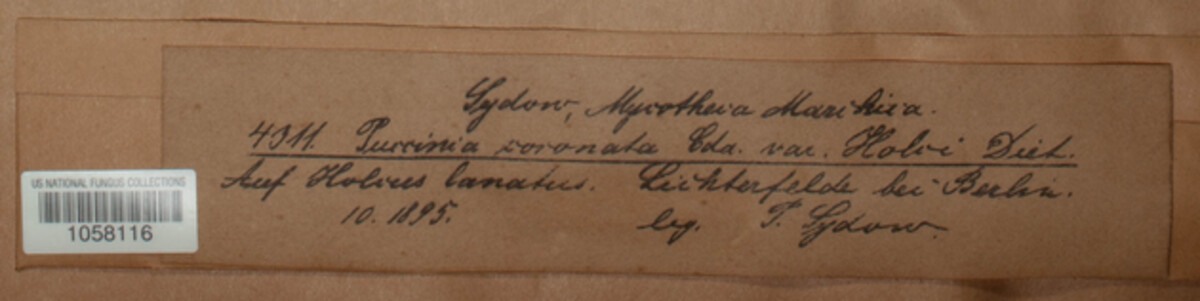 Sydow, Mycotheca Marchica.
4311. Puccinia coronata Cda. var. Holci Diet.
Auf Holcus lanatus. Lichterfelde bei Berlin.
10. 1895. leg. P. Sydow.
US NATIONAL FUNGUS COLLECTIONS
1058116